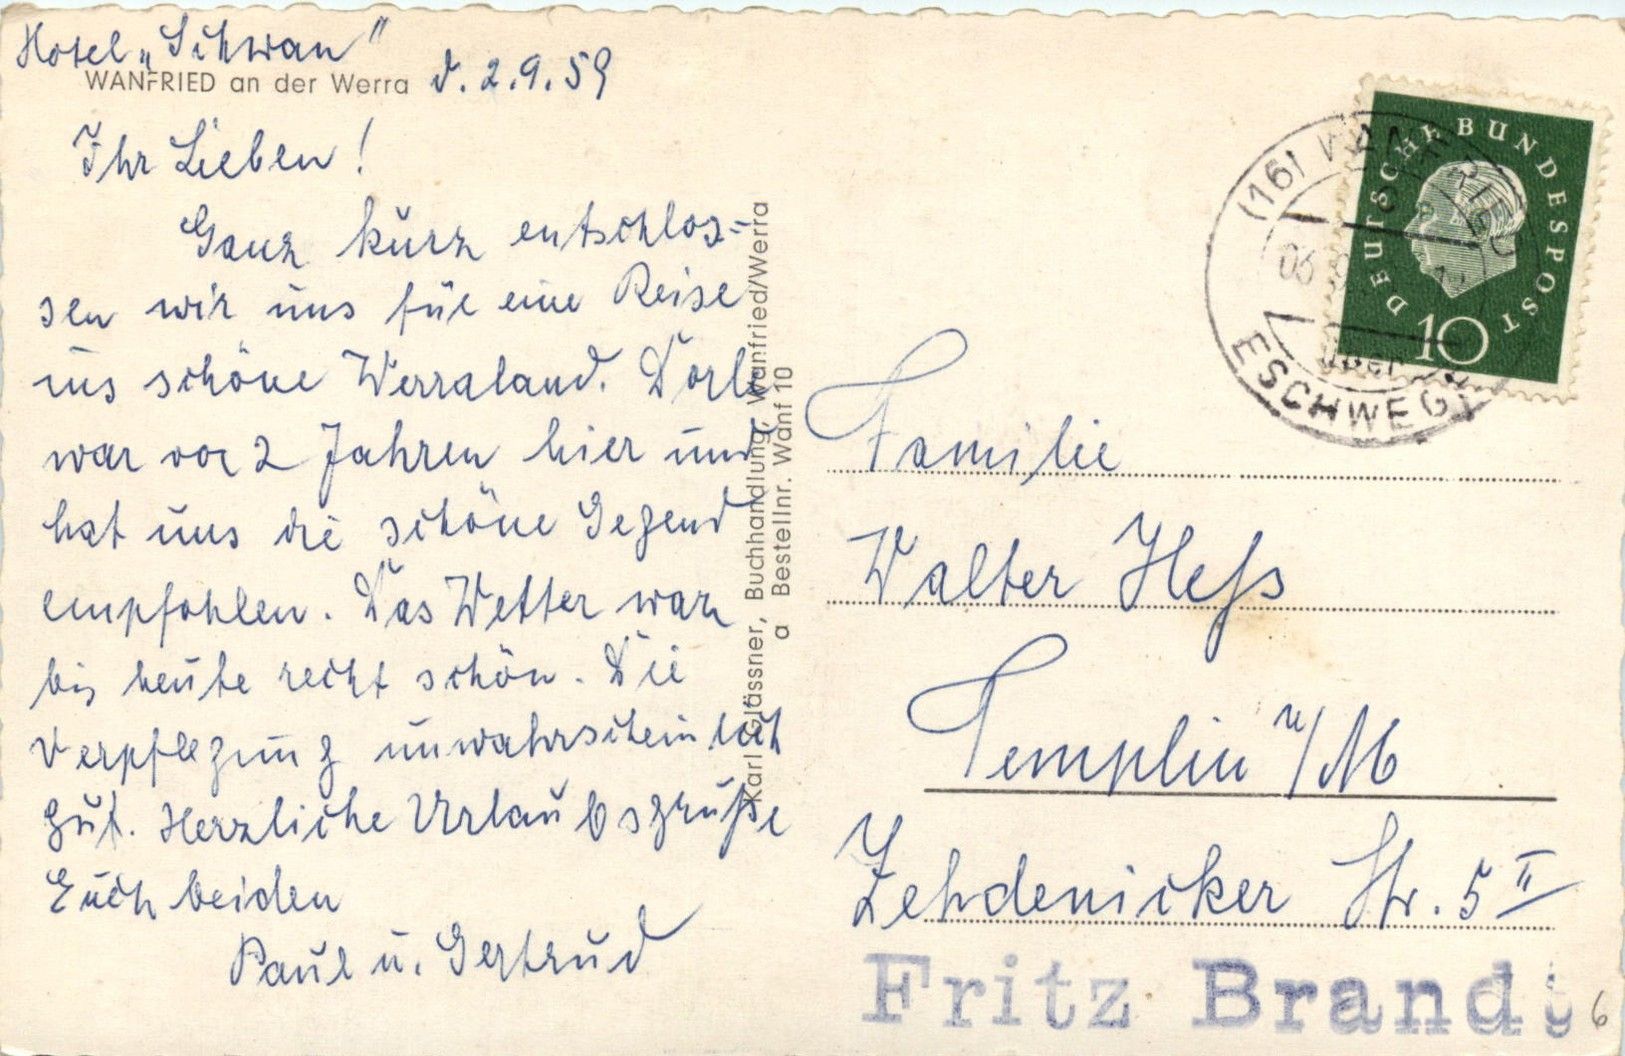 Hotel „Schwan"
WANFRIED an der Werra d. 2.9.59
Ihr Lieben!
Ganz kurz entschlos=
sen wir uns für eine Reise
ins schöne Werraland. Dorle
war vor 2 Jahren hier und
hat uns die schöne Gegend
empfohlen. Das Wetter war
bis heute recht schön. Die
Verpflegung unwahrscheinlich
gut. Herzliche Urlaubsgrüße
Euch beiden
Paul u. Gertrud
Karl Glässner, Buchhandlung, Wanfried/Werra
a Bestellnr. Wanf 10
(16) WANFRIED
über
ESCHWEGE
DEUTSCHE BUNDESPOST
10
Familie
Walter Heß
Templin u/M
Zehdenicker Str. 5 II
Fritz Brandt
6